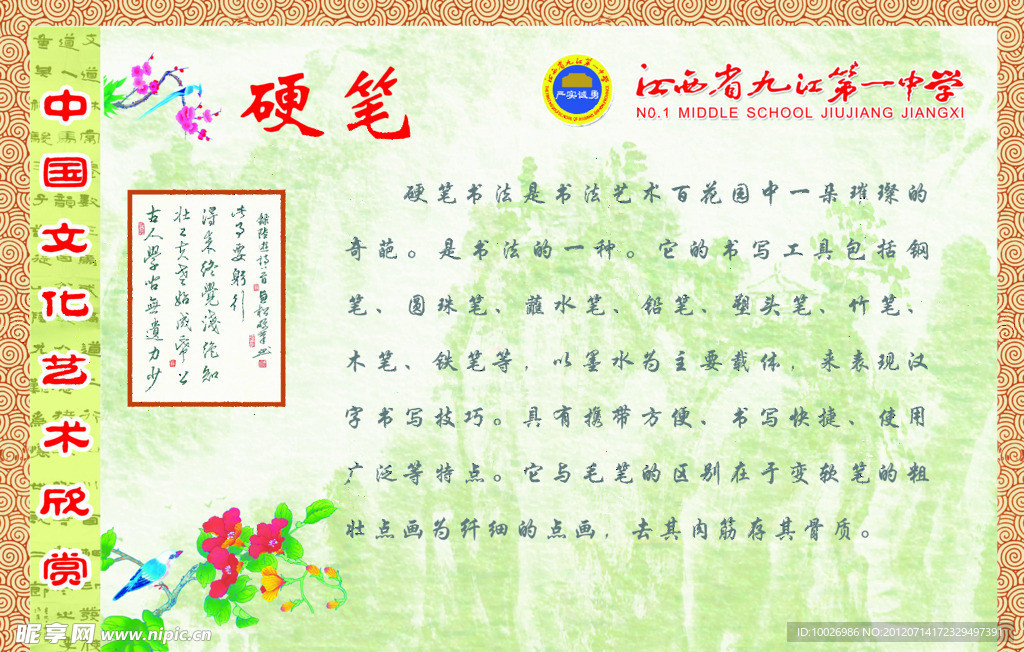 中国文化艺术欣赏
硬笔
严实诚勇
江西省九江第一中学
NO.1 MIDDLE SCHOOL JIUJIANG JIANGXI
硬笔书法是书法艺术百花园中一朵璀璨的
奇葩。是书法的一种。它的书写工具包括钢
笔、圆珠笔、蘸水笔、铅笔、塑头笔、竹笔、
木笔、铁笔等，以墨水为主要载体，来表现汉
字书写技巧。具有携带方便、书写快捷、使用
广泛等特点。它与毛笔的区别在于变软笔的粗
壮点画为纤细的点画，去其肉筋存其骨质。
古人學问無遺力少
壯工夫老始成紙上
得来终覺淺绝知
此事要躬行
昵享网 www.nipic.cn
ID:10026986 NO:20120714172329497391